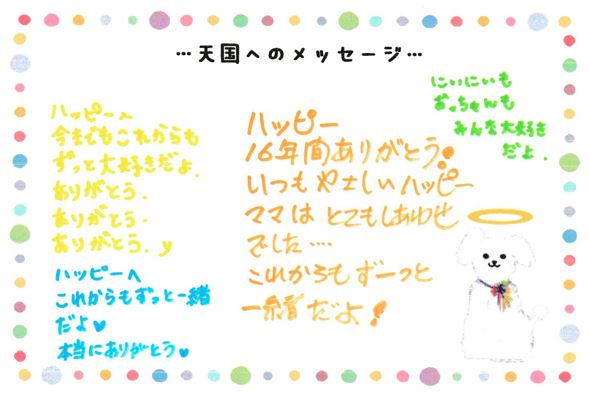 …天国へのメッセージ…
ハッピーへ
今までもこれからも
ずっと大好きだよ.
ありがとう.
ありがとう.
ありがとう. y
ハッピーへ
これからもずっと一緒
だよ♥
本当にありがとう♥
ハッピー
16年間ありがとう!
いつもやさしいハッピー
ママはとてもしあわせ
でした....
これからもずーっと
一緒だよ!
にぃにぃも
おっちゃんも
みんな大好き
だよ.